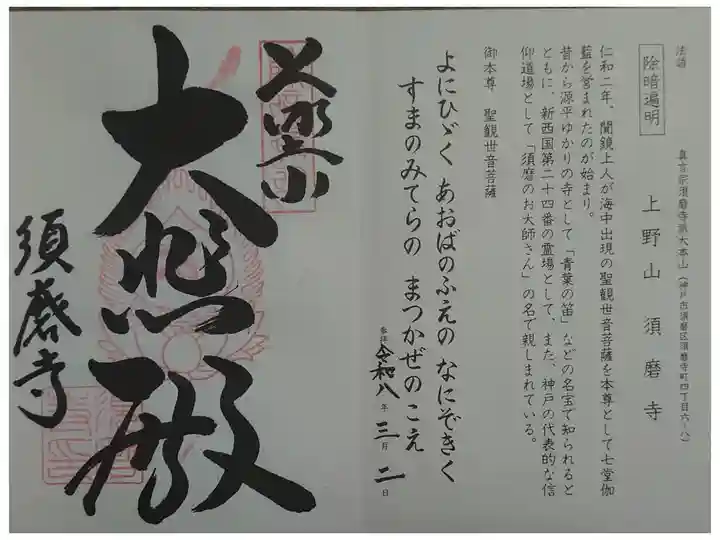 法語
除暗遍明
真言宗須磨寺派大本山(神戸市須磨区須磨寺町四丁目六ノ八)
上野山 須磨寺
仁和二年、聞鏡上人が海中出現の聖観世音菩薩を本尊として七堂伽
藍を営まれたのが始まり。
昔から源平ゆかりの寺として「青葉の笛」などの名宝で知られると
ともに、新西国第二十四番の霊場として、また、神戸の代表的な信
仰道場として「須磨のお大師さん」の名で親しまれている。
御本尊 聖観世音菩薩
よにひゞく あおばのふえの なにぞきく
すまのみてらの まつかぜのこえ
参拝 令和八年三月二日
上野山
大悲殿
須磨寺